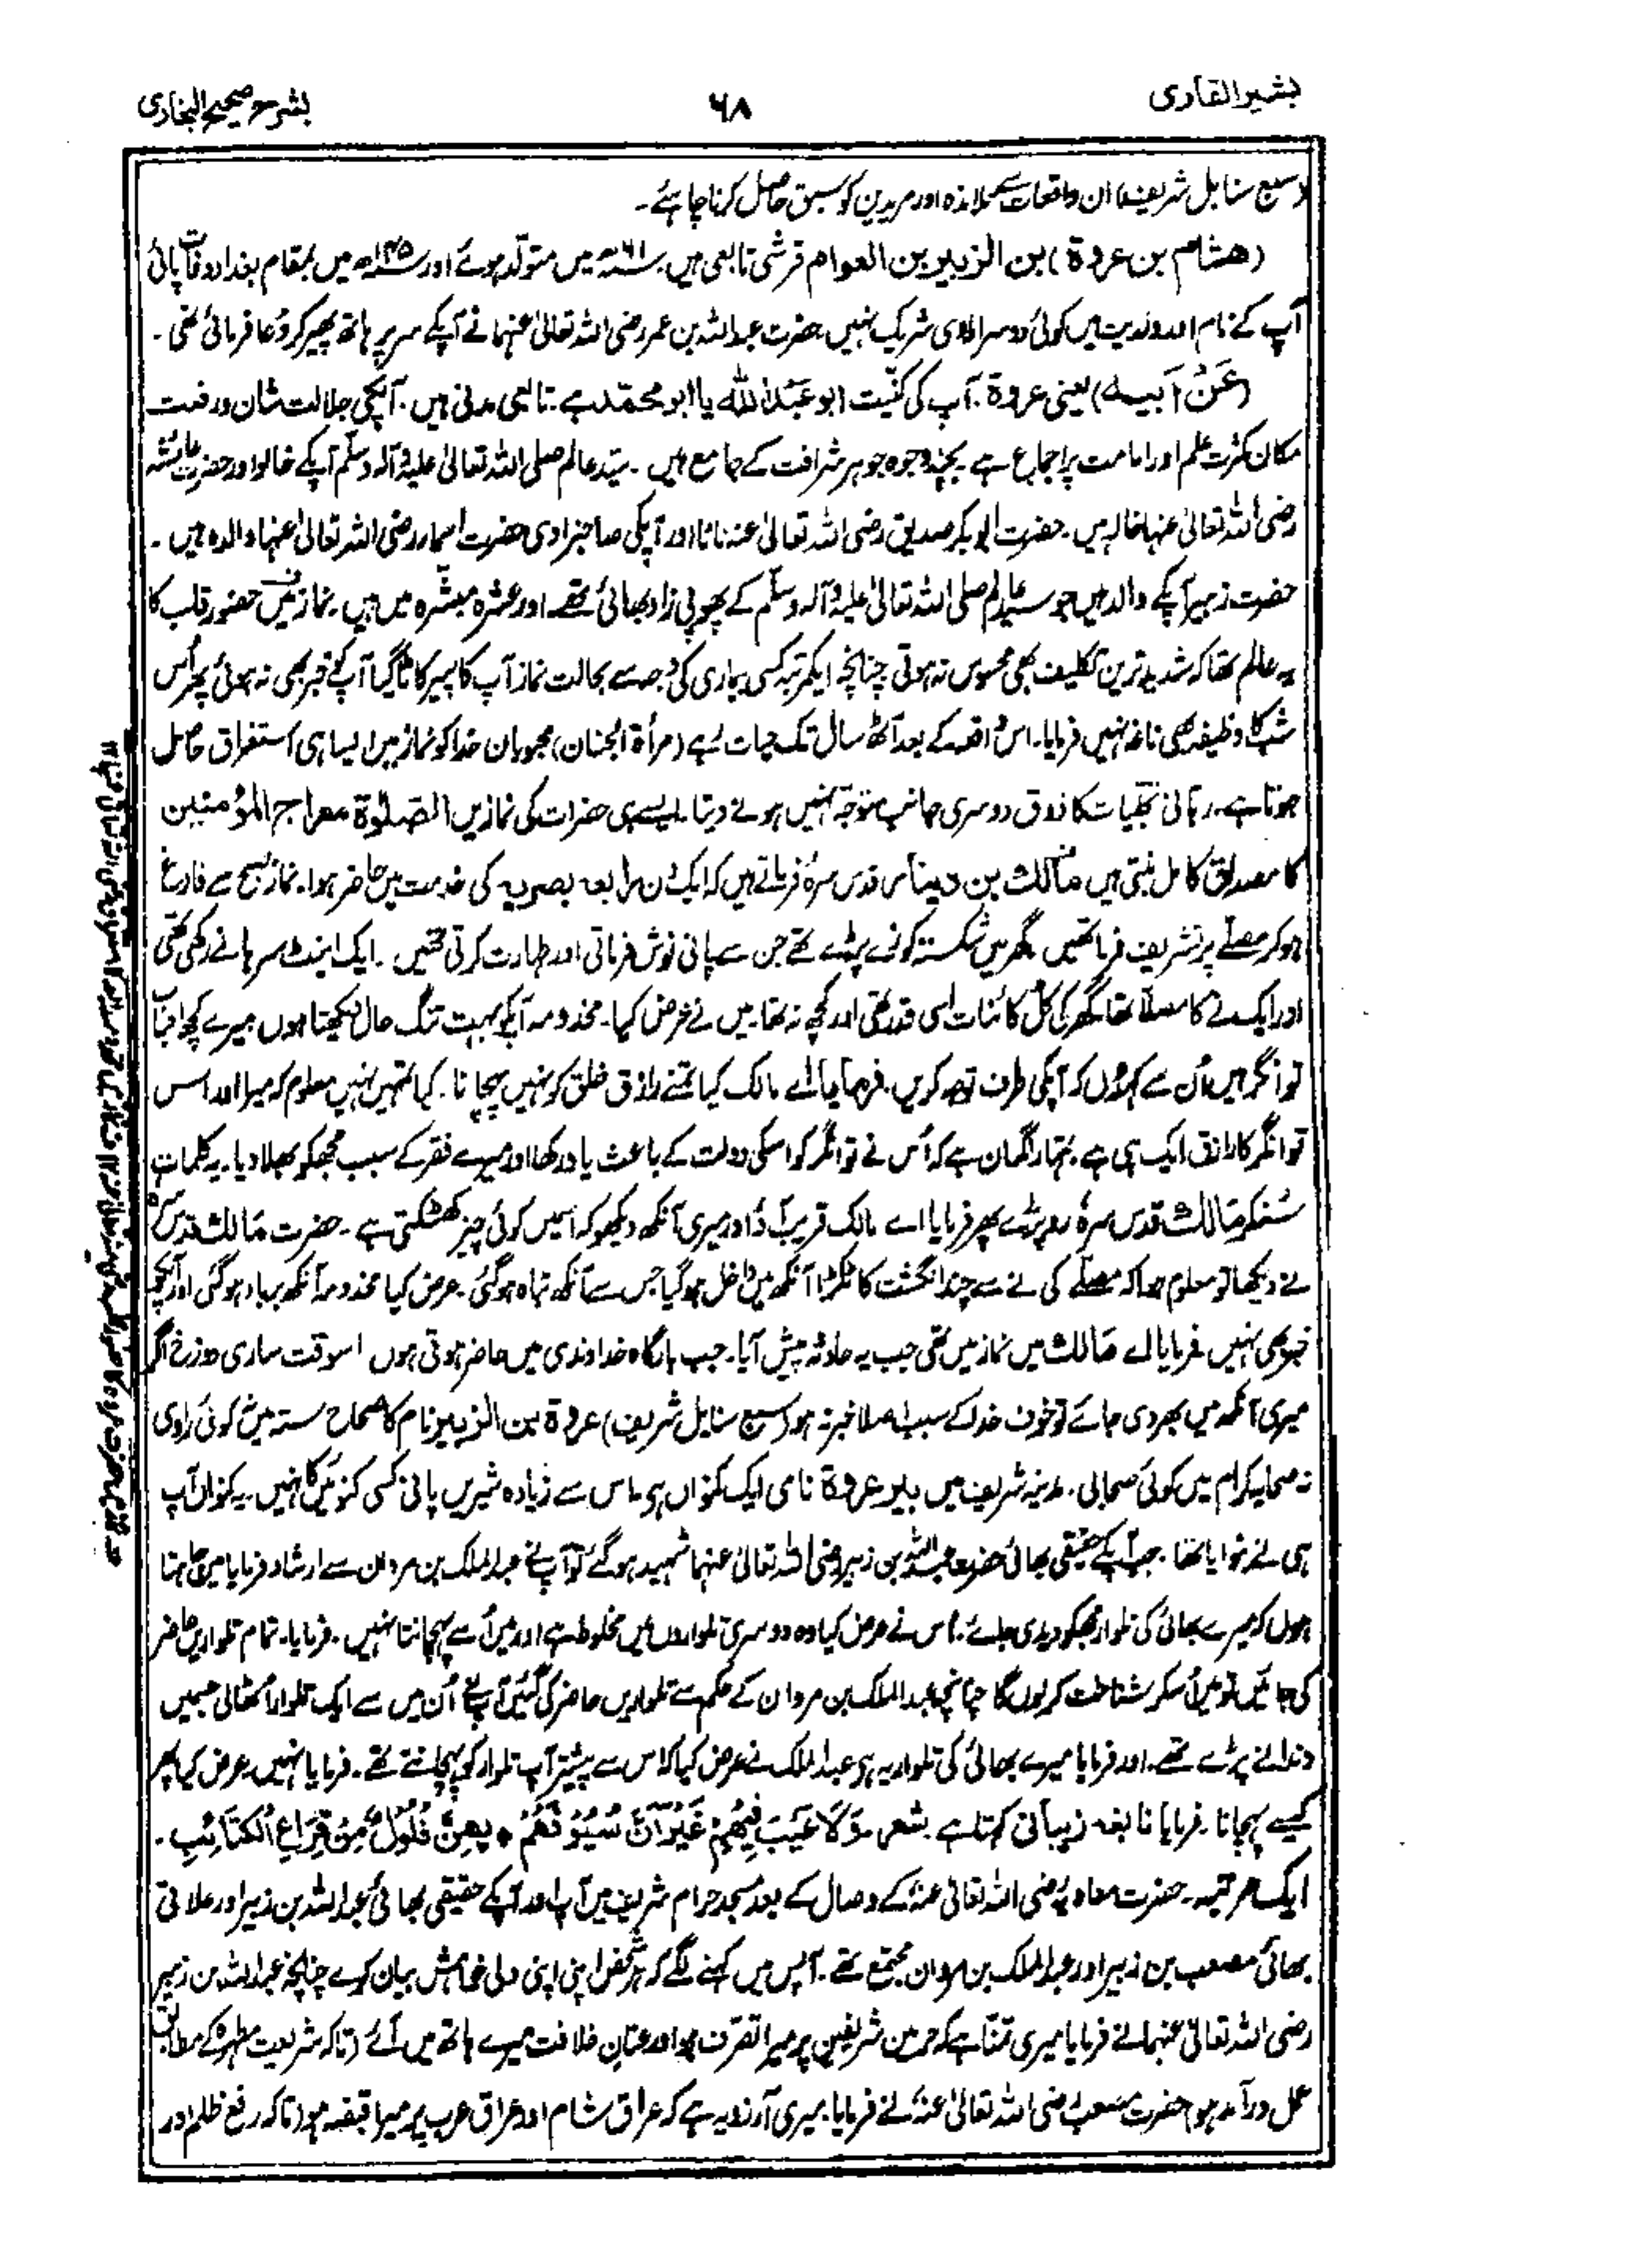 بشیر القاری
۶۸
بشرح صحیح البخاری
(سبع سنابل شریف) ان واقعات سے تلامذہ اور مریدین کو سبق حاصل کرنا چاہئے۔
(ھشام بن عروۃ) بن الزبیر بن العوام قرشی تابعی ہیں۔ ۶۱ھ میں متولّد ہوئے اور ۱۴۵ھ میں بمقام بغداد وفات پائی
آپ کے نام اور ولدیت میں کوئی دوسرا راوی شریک نہیں۔ حضرت عبداللہ بن عمر رضی اللہ تعالیٰ عنہما نے آپکے سر پر ہاتھ پھیر کر دعا فرمائی تھی۔
(عَنْ اَبیہ) یعنی عروۃ۔ آپ کی کنّیت ابو عبداللہ یا ابو محمّد ہے۔ تابعی مدنی ہیں۔ آپکی جلالت شان ورفعت
مکان کثرت علم اور امامت پر اجماع ہے۔ بچند وجوہ جوہر شرافت کے جامع ہیں۔ سیّد عالم صلی اللہ تعالیٰ علیہ وآلہ وسلّم آپکے خالو اور حضرت عائشہ
رضی اللہ تعالیٰ عنہا خالہ ہیں۔ حضرت ابوبکر صدیق رضی اللہ تعالیٰ عنہ نانا اور آپکی صاحبزادی حضرت اسمار رضی اللہ تعالیٰ عنہا والدہ ہیں۔
حضرت زبیر آپکے والد ہیں جو سیدعالم صلی اللہ تعالیٰ علیہ وآلہ وسلّم کے پھوپی زاد بھائی تھے۔ اور عشرہ مبشّرہ میں ہیں۔ نماز میں حضور قلب کا
یہ عالم تھا کہ شدید ترین تکلیف بھی محسوس نہ ہوتی چنانچہ ایکمرتبہ کسی بیماری کی وجہ سے بحالت نماز آپ کا پیر کاٹا گیا آپ کو خبر بھی نہ ہوئی پھر اُس
شب کا وظیفہ بھی ناغہ نہیں فرمایا۔ اس واقعہ کے بعد آٹھ سال تک حیات رہے (مرأۃ الجنان) محبوبان خدا کو نماز میں ایسا ہی استغراق حاصل
ہوتا ہے۔ ربّانی تجلیات کا ذوق دوسری جانب متوجّہ نہیں ہونے دیتا۔ ایسے ہی حضرات کی نمازیں الصّلٰوۃ معراج المؤمنین
کا مصداق کامل بنتی ہیں مالک بن دینار قدس سرہٗ فرماتے ہیں کہ ایک دن رابعہ بصریہ کی خدمت میں حاضر ہوا۔ نماز صبح سے فارغ
ہوکر مصلّے پر تشریف فرما تھیں گھر میں شکستہ کوزے پڑے تھے جن سے پانی نوش فرماتی اور طہارت کرتی تھیں۔ ایک اینٹ سرہانے رکھی تھی
اور ایک نے کا مصلّا تھا گھر کی کل کائنات اسی قدر تھی اور کچھ نہ تھا۔ میں نے عرض کیا۔ مخدومہ آپکو بہت تنگ حال دیکھتا ہوں میرے کچھ احباب
توانگر ہیں اُن سے کہدوں کہ آپکی طرف توجہ کریں۔ فرمایا اے مالک کیا تمنے رازق خلق کو نہیں پہچانا۔ کیا تمہیں نہیں معلوم کہ میرا اور اس
توانگر کا رازق ایک ہی ہے۔ تمہارا گمان ہے کہ اُس نے توانگر کو اسکی دولت کے باعث یاد رکھا اور میرے فقر کے سبب مجھکو بھلا دیا۔ یہ کلمات
سنکر مالک قدس سرہٗ رو پڑے پھر فرمایا اے مالک قریب آؤ اور میری آنکھ دیکھو کہ اسمیں کوئی چیز کھٹکتی ہے۔ حضرت مالک قدس سرہٗ
نے دیکھا تو معلوم ہوا کہ مصلّے کی نے سے چند انگشت کا ٹکڑا آنکھ میں داخل ہو گیا جس سے آنکھ تباہ ہوگئی۔ عرض کیا مخدومہ آنکھ برباد ہوگئی اور آپکو
خبر بھی نہیں۔ فرمایا اے مالک میں نماز میں تھی جب یہ حادثہ پیش آیا۔ جب بارگاہ خداوندی میں حاضر ہوتی ہوں اسوقت ساری دوزخ اگر
میری آنکھ میں بھر دی جائے تو خوف خدا کے سبب اصلا خبر نہ ہو (سبع سنابل شریف) عروۃ بن الزبیر نام کا صحاح ستہ میں کوئی راوی
نہ صحابہ کرام میں کوئی صحابی۔ مدینہ شریف میں بیر عروۃ نامی ایک کنواں ہے۔ اس سے زیادہ شیریں پانی کسی کنوئیں کا نہیں۔ یہ کنواں آپ
ہی نے بنوایا تھا۔ جب آپکے حقیقی بھائی حضرت عبداللہ بن زبیر رضی اللہ تعالیٰ عنہما شہید ہوگئے تو آپنے عبدالملک بن مروان سے ارشاد فرمایا میں چاہتا
ہوں کہ میرے بھائی کی تلوار مجھکو دیدی جائے۔ اس نے عرض کیا وہ دوسری تلواروں میں مخلوط ہے اور میں اُسے پہچانتا نہیں۔ فرمایا۔ تمام تلواریں حاضر
کی جائیں تو میں اسکو شناخت کرلوں گا چنانچہ عبدالملک بن مروان کے حکم سے تلواریں حاضر کی گئیں آپنے اُن میں سے ایک تلوار اُٹھالی جسمیں
دندانے پڑے تھے۔ اور فرمایا میرے بھائی کی تلوار یہ ہے۔ عبدالملک نے عرض کیا کہ اس سے پیشتر آپ تلوار کو پہچانتے تھے۔ فرمایا نہیں۔ عرض کیا پھر
کیسے پہچانا۔ فرمایا نابغہ ذبیانی کہتا ہے۔ شعر۔ وَلَا عَيْبَ فِيْهِمْ غَيْرَ اَنَّ سُيُوْفَهُمْ ٭ بِهِنَّ فُلُوْلٌ مِنْ قِرَاعِ الْكَتَائِبِ۔
ایک مرتبہ۔ حضرت معاویہ رضی اللہ تعالیٰ عنہ کے وصال کے بعد مسجد حرام شریف میں آپ اور آپکے حقیقی بھائی عبداللہ بن زبیر اور علاتی
بھائی مصعب بن زبیر اور عبدالملک بن مروان مجتمع تھے۔ آپس میں کہنے لگے کہ ہر شخص اپنی اپنی دلی خواہش بیان کرے چنانچہ عبداللہ بن زبیر
رضی اللہ تعالیٰ عنہما نے فرمایا میری تمنّا ہے کہ حرمین شریفین پر میرا تصرّف ہو اور عنان خلافت میرے ہاتھ میں آئے (تاکہ شریعت مطہرہ کے مطابق
عمل درآمد ہو) حضرت مصعب رضی اللہ تعالیٰ عنہ نے فرمایا۔ میری آرزو یہ ہے کہ عراق شام اور عراق عرب پر میرا قبضہ ہو (تاکہ رفع ظلم اور